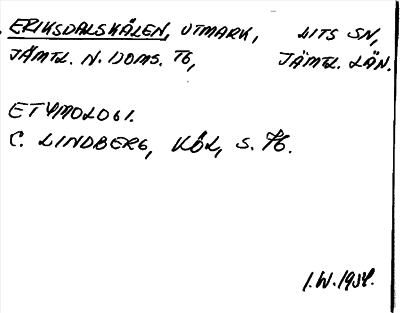 ERIKSDALSKÅLEN, UTMARK, LITS SN,
JÄMTL. N. DOMS. TG, JÄMTL. LÄN.
ETYMOLOGI.
C. LINDBERG, KÖL, S. 76.
I.W. 1954.